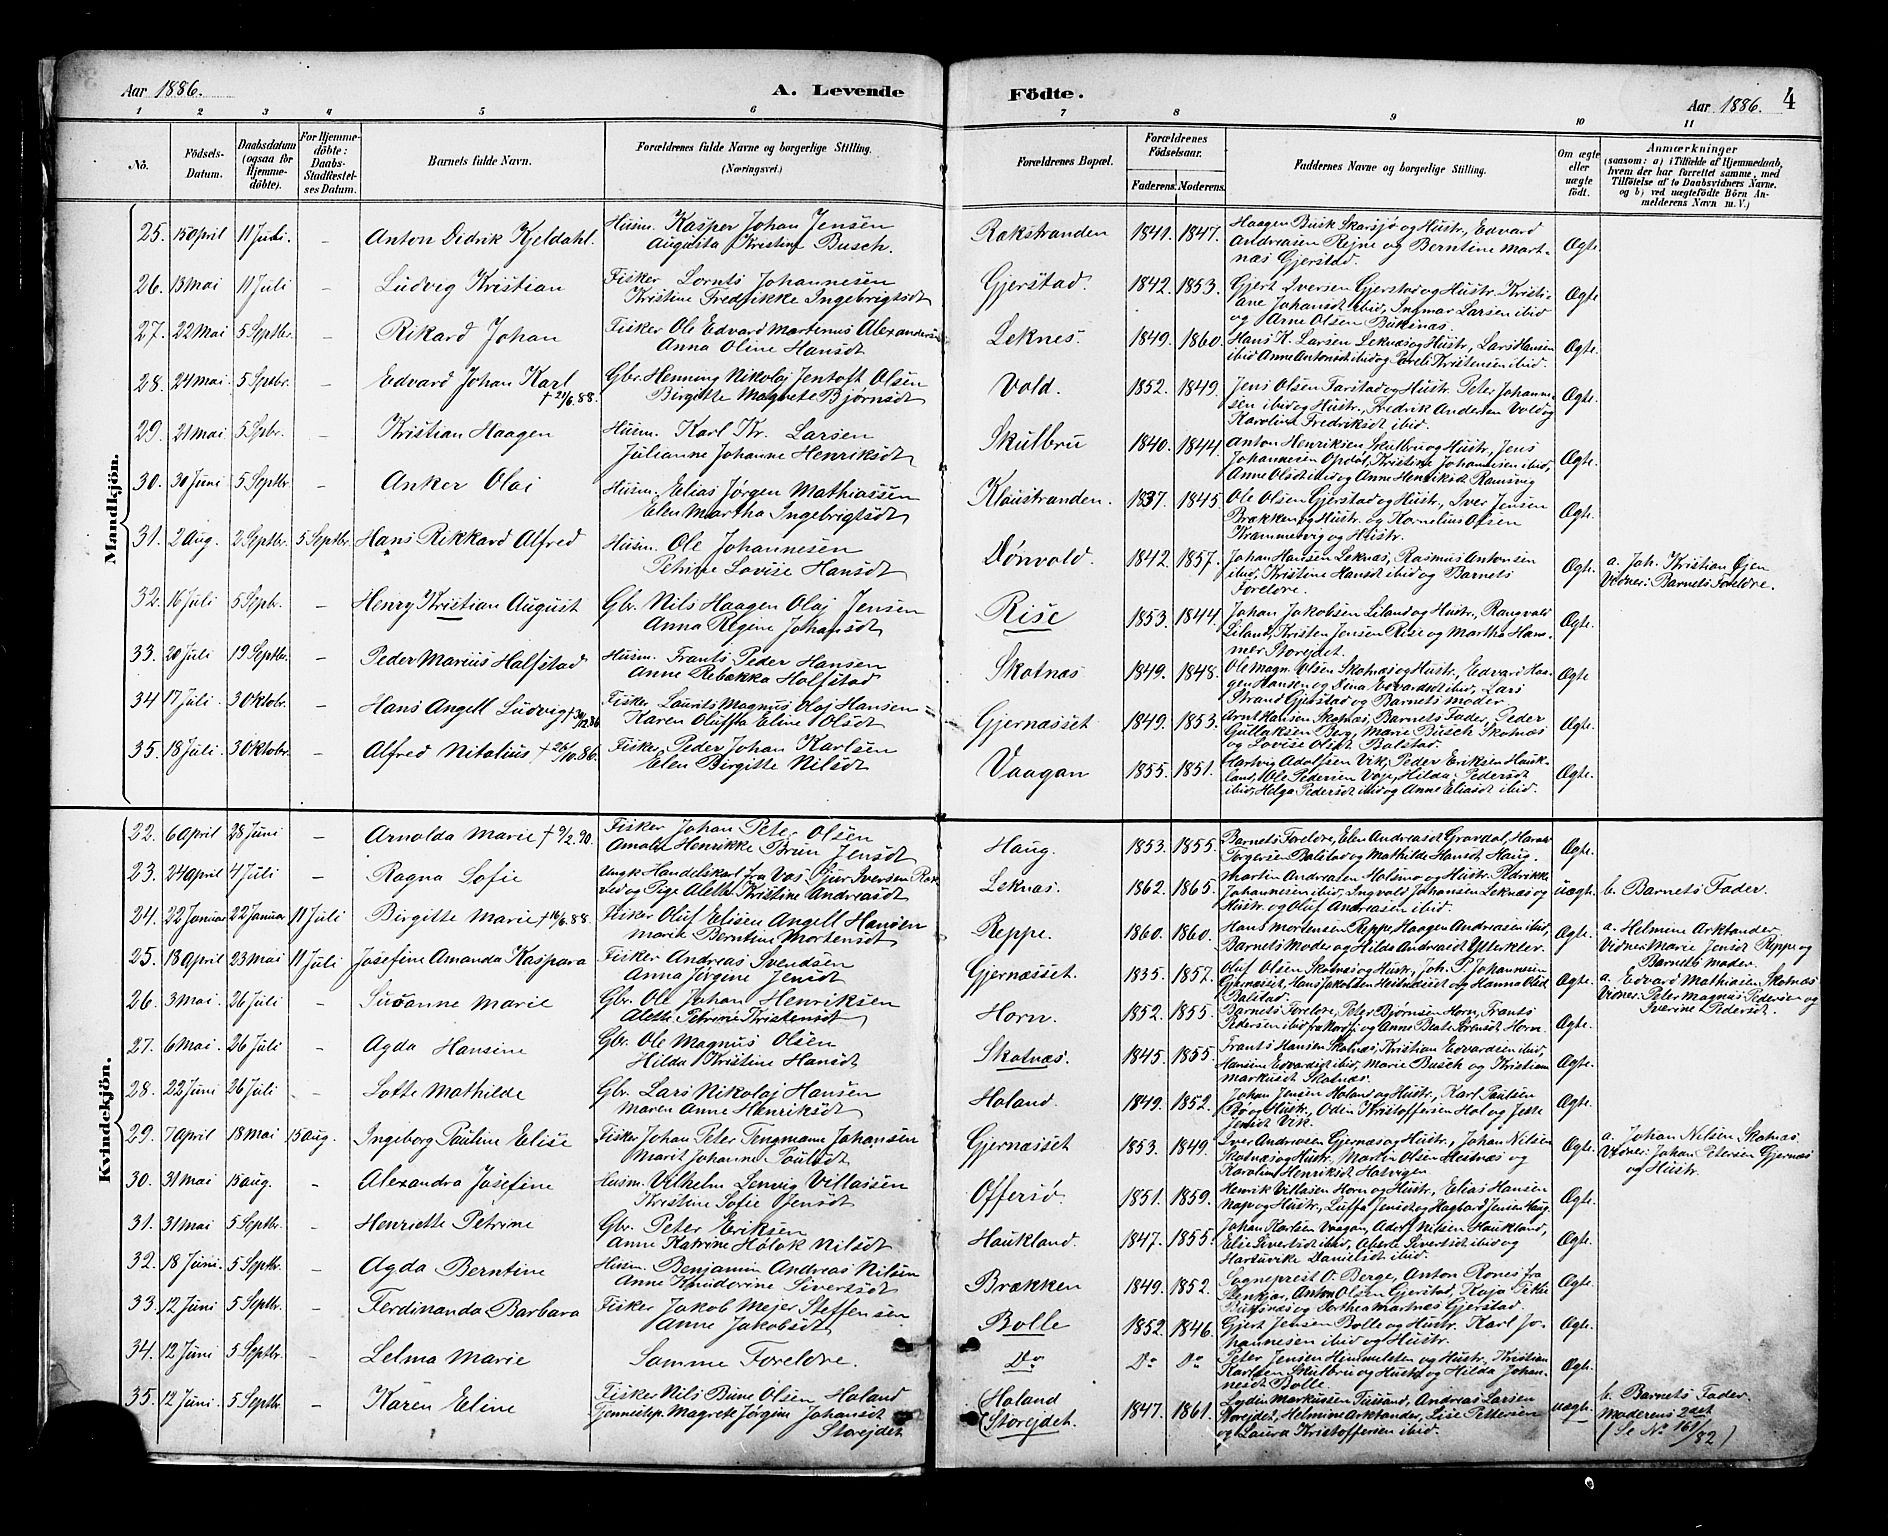 Aar 1886. A. Levende Födte. Aar 1886. 4
1 2 3 4 5 6 7 8 9 10 11
No. Födsels-Datum. Daabsdatum (ogsaa for Hjemmedöbte). For Hjemmedöbte: Daabs-Stadfæstelses Datum. Barnets fulde Navn. Forældrenes fulde Navne og borgerlige Stilling. (Næringsvei.) Forældrenes Bopæl. Forældrenes Födselsaar. Faderens. Moderens. Faddernes Navne og borgerlige Stilling. Om ægte eller uægte födt. Anmærkninger (saasom: a) i Tilfælde af Hjemmedaab, hvem der har forrettet samme, med Tilföielse af to Daabsvidners Navne, og b) ved uægtefödte Börn Anmelderens Navn m. V.)
Mandkjön.
25. 15 April 11 Juli. – Anton Didrik Kjeldahl. Husm. Kasper Johan Jensen Rakstranden 1841. 1847. Haagen Busk Skarsjø og Hustr., Edvard Ægte.
Augusta Kristine Busch. Andreasen Rejne og Berntine Mart-
næs Gjerstad.
26. 13 Mai 11 Juli – Ludvig Kristian Fisker Lornts Johannesen Gjerstad. 1842. 1853. Gjert Iversen Gjerstad og Hustr. Kristi- Ægte.
Kristine Fredrikke Ingebrigtsdt ane Johansdt ibid, Ingmar Larsen ibid
og Arne Olsen Buksnæs.
27. 22 Mai 5 Septbr. – Rikard Johan Fisker Ole Edvard Martenus Alexandersen Leknes. 1849. 1860. Hans K. Larsen Leknæs og Hustr., Lars Hansen Ægte.
Anna Oline Hansdt ibid Anne Antonsdt ibid og Kristensen ibid.
28. 24 Mai 5 Septbr. – Edvard Johan Karl Gbr. Henning Nikolaj Jentoft Olsen Vold. 1852. 1849. Jens Olsen Farstad og Hustr. Peter Johanne- Ægte.
+ 21/6.88. Birgitte Magrete Bjørnsdt sen ibid og Hustr., Fredrik Andersen Vold og
Karoline Fredriksdt ibid.
29. 21 Mai 5 Spbr. – Kristian Haagen Husm. Karl Kr. Larsen Skulbru 1840. 1844. Anton Henriksen Skulbru og Hustr., Jens Ægte.
Julianne Johanne Henriksdt Johannesen Opdøl, Kristine Johannesen ibid,
Anne Olsdt ibid og Anne Henriksdt Ramsvig
30. 30 Juni 5 Septbr – Anker Olai Husm. Elias Jørgen Mathiassen Klaustranden. 1837. 1845. Ole Olsen Gjerstad og Hustr., Iver Jensen Ægte.
Elen Martha Ingebrigtsdt Brækken og Hustr. og Kornelius Olsen
Krammervig og Hustr.
31. 2 Aug. 2 Septbr. 5 Septbr. Hans Rikkard Alfred Husm. Ole Johannesen Dønvold. 1842. 1857. Johan Hansen Leknæs, Rasmus Antonsen Ægte. a. Joh. Kristian Øjen
Petrine Lovise Hansdt ibid, Kristine Hansdt ibid og Barnets Vidner: Barnets Foreldre.
Foreldre.
32. 16 Juli 5 Septb. – Henry Kristian August Gbr. Nils Haagen Olaj Jensen Rise 1853. 1844. Johan Jakobsen Liland og Hustr., Rangvald Ægte.
Anna Regine Johansdt Liland, Kristen Jensen Rise og Martha Ham-
mer Storejdet.
33. 20 Juli 19 Septbr. – Peder Marius Halfstad Husm. Frants Peder Hansen Skotnæs 1849. 1848. Ole Magn. Olsen Skotnæs og Hustr., Edvard Haa- Ægte
Anne Rebækka Halfstad gen Hansen og Dina Edvardsdt ibid, Lars
Strand Gjerstad og Barnets Moder.
34 17 Juli 3 Oktobr. – Hans Angell Ludvig + 30/12 86 Fisker Laurits Magnus Olaj Hansen Gjernæsset 1849. 1853. Arnt Hansen Skotnæs, Barnets Fader, Peder Ægte.
Karen Oluffa Eline Olsdt Gullaksen Berg, Marie Busch Skotnæs
og Lovise Olsdt Balstad.
35. 18 Juli 3 Oktobr. – Alfred Nitalius + 26/10.86. Fisker Peder Johan Karlsen Vaagan 1855. 1851. Hartvig Adolfsen Vik, Peder Eriksen Hauk- Ægte.
Elen Birgitte Nilsdt land, Ole Pedersen Voje, Hilda Pedersdt
ibid, Helga Pedersdt ibid og Anne Eliasdt ibid.
Kvindekjön.
22. 6 April 28 Juni – Arnolda Marie + 9/2.90. Fisker Johan Peter Olsen Haug. 1853. 1855. Barnets Foreldre, Elen Andreasdt Gravdal, Ægte.
Henrikke Brun Jensdt Torgersen Balstad og Mathilde Hansdt Haug.
23. 24 April 4 Juli – Ragna Sofie Ungk. Handelskarl fra Vaa Iversen Leknæs. 1862. 1865. Martin Andreasen Holsmo og Hustr. uægt. b. Barnets Fader.
og Pige Alette Kristine Andreasdt Johannesen ibid, Ingvald Johansen Leknæs og
Hustr. og Oluf Andreasen ibid.
24. 22 Januar 22 Januar 11 Juli Birgitte Marie + 16/6.88. Fisker Oluf Elisen Angell Hansen Reppe. 1860. 1860. Hans Mortensen Reppe, Haagen Andreasen ibid, Ægt. a. Helmine Arktander
Marie Berntine Mortensdt Barnets Moder og Hilda Andreasdt Ytterklev. Vidner: Marie Jensdt Reppe og
Barnets Moder.
25. 18 April 23 Mai 11 Juli Josefine Amanda Kaspara Fisker Andreas Svendsen Gjernæsset. 1835. 1857. Oluf Olsen Skotnæs og Hustr., Joh. P. Johannesen Ægte. a. Edvard Mathiasen Skotnæs
Anna Jørgine Jensdt Gjernæsset, Hans Jakobsen og Hanna Olsdt Vidner: Peter Magnus Pedersen og
Balstad. Iverine Pedersdt.
26. 3 Mai. 26 Juli – Susanne Marie Gbr. Ole Johan Henriksen Horn. 1852. 1855. Barnets Foreldre, Peter Bjørnsen Horn, Frants Ægte.
Alette Petrine Kristensdt Pedersen ibid og Anne Beate Horn.
27. 6 Mai. 26 Juli – Agda Hansine Gbr. Ole Magnus Olsen Skotnæs. 1845. 1855. Frants Hansen Skotnæs, Kristian Edvardsen ibid, Ægte.
Hilda Kristine Hansdt Hansine Edvardsdt ibid, Marie Busch og Kristiane
Markusdt Skotnæs.
28. 22 Juni 26 Juli – Lotte Mathilde Gbr. Lars Nikolaj Hansen Holand. 1849. 1852. Johan Jensen Holand og Hustr., Karl Paulsen Ægte.
Maren Anne Henriksdt Bø og Hustr., Odin Kristoffersen Hol og
Jensdt Vik.
29. 7 April 18 Mai 15 Aug. Ingeborg Pauline Elise Fisker Johan Peter Tengmann Johansen Gjernæsset 1853. 1849. Iver Andreasen Gjernæs og Hustr., Johan Nilsen Ægte. a. Johan Nilsen Skotnæs.
Marit Johanne Paulsdt Skotnæs og Hustr., Martin Olsen og Vidner: Johan Petersen Gjernæs
Karoline Henriksdt Hatvigen og Hustr.
30. 31 Mai 15 Aug. – Alexandra Josefine Husm. Vilhelm Lenvig Villassen Offersø. 1851. 1859. Henrik Villasen Horn og Hustr., Elias Hansen Ægte.
Kristine Sofie Jensdt Nap og Hustr., Luffa Jensdt og Hagbard Jensen Haug.
31. 31 Mai 5 Septbr. – Henriette Petrine Gbr. Peter Eriksen Haukland. 1847. 1855. Johan Karlsen Vaagan, Adolf Nilsen Haukland, Ægte.
Anne Katrine Nilsdt Else Sivertsdt ibid, Sivertsdt ibid og
Danielsdt ibid.
32. 18 Juni. 5 Septbr. – Agda Berntine Husm. Benjamin Andreas Nilsen Brækken 1849. 1852. Sogneprest O. Berge, Anton Rones fra Ægte.
Anne Knuderine Sivertsdt Anton Olsen Gjerstad, Kaja
Buksnæs og Dorthea Martnæs Gjerstad.
33. 12 Juni 5 Septbr. – Ferdinanda Barbara Fisker Jakob Mejer Steffensen Bolle 1852. 1846. Gjert Jensen Bolle og Hustr. Karl Jo- Ægte.
Anne Jakobsdt hannesen ibid og Hustr.
34. 12 Juni 5 Septbr. – Selma Marie Samme Foreldre. Do Do Do Peter Jensen Himmelsten og Hustr., Kristian Ægte.
Karlsen Skulbru og Hustr og Hilda Johan-
nesdt Bolle.
35. 12 Juni. 5 Septbr – Karen Eline Fisker Nils Olsen Holand Holand 1847. 1861. Markussen Andreas Larsen uægt. b. Barnets Fader
Tjennestep. Magrete Jørgine Johansdt (Storejdet. Storejdet, Helmine Arktander, Lise Pettersen Moderens 2det
Storejdet og Laura Kristoffersen ibid. (Se No 161/82)